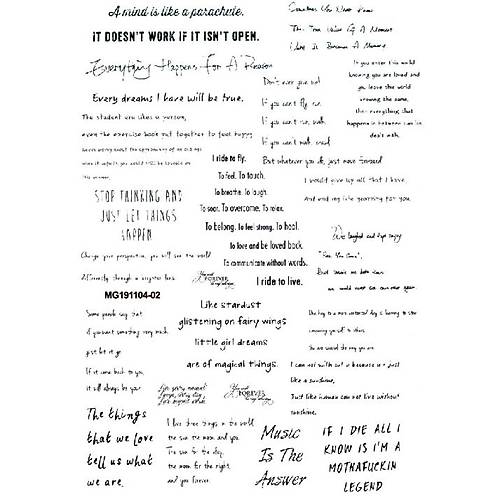 A mind is like a parachute.
IT DOESN'T WORK IF IT ISN'T OPEN.
Everything Happens For A Reason
Every dreams I have will be true.
The student are likes a person,
even the exercise book put together to feel happy
STOP THINKING AND
JUST LET THINGS
HAPPEN
Change your perspective, you will see the world
differently through a
MG191104-02
Sometimes You Never Know
The True Value Of A Moment
Until It Becomes A Memory.
If you enter this world
knowing you are loved and
you leave the world
knowing the same,
then everything that
happens in between can be
dealt with.
Don't ever give up!
If you can't fly, run,
If you can't run, walk
If you can't walk, crawl
But whatever you do, just move forward
I ride to fly.
To feel. To touch.
To breathe. To laugh.
To soar. To overcome. To relax.
To belong. To feel strong. To heal.
To love and be loved back.
To communicate without words.
I ride to live.
I would give up all that I have
And end my life yearning for you
We laughed and kept saying
"See You Soon",
But inside we both knew
we would never see each other again
Like stardust
glistening on fairy wings
little girl dreams
are of magical things.
Some people say that
if you want something very much
just let it go
If it came back to you,
it will always be your
FOREVER
I can not with out u because u r just
like a sunshine,
Just like human can not live without
sunshine.
The things
that we love
tell us what
we are.
I love three things in the world
the sun the moon and you.
The sun for the day,
the moon for the night,
and you forever.
Music
Is The
Answer
IF I DIE ALL I
KNOW IS I'M A
MOTHAFUCKIN
LEGEND